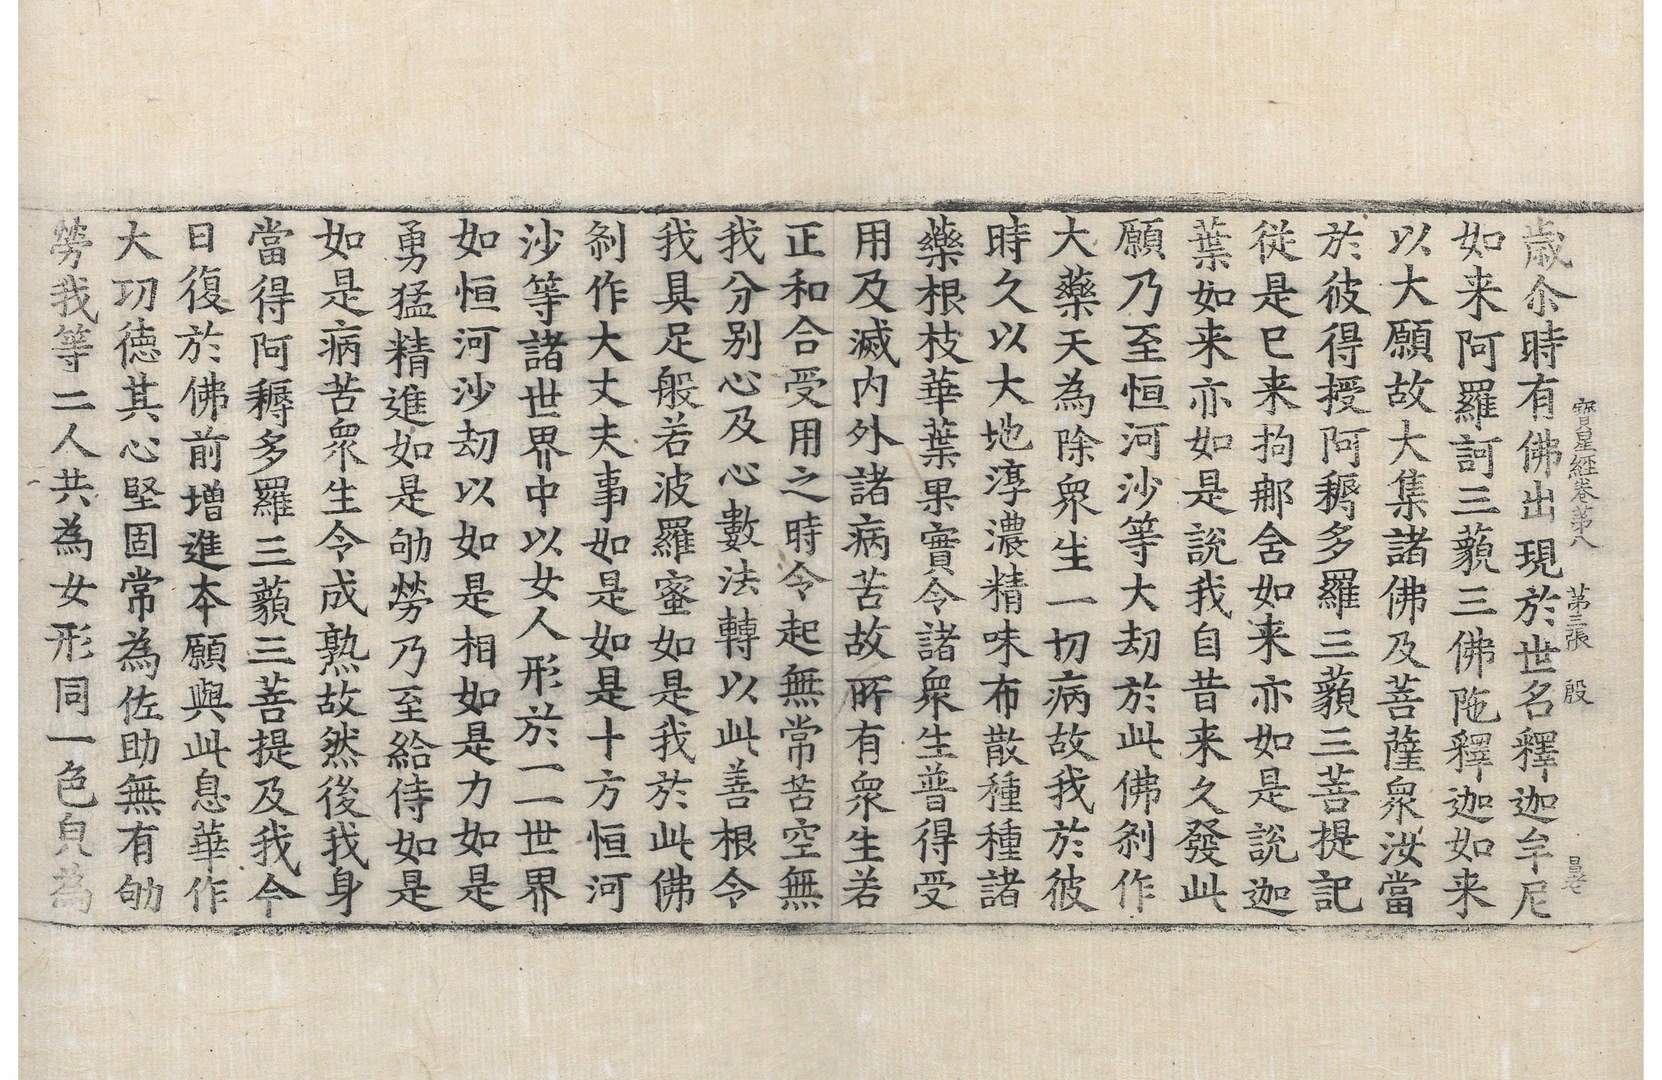 寶星經卷第八　第三張　殷
歲尒時有佛出現於世名釋迦牟尼
如来阿羅訶三藐三佛陁釋迦如来
以大願故大集諸佛及菩薩衆汝當
於彼得授阿耨多羅三藐三菩提記
從是已来拘郍含如来亦如是說迦
葉如来亦如是說我自昔来久發此
願乃至恒河沙等大劫於此佛刹作
大藥天為除衆生一切病故我於彼
時久以大地淳濃精味布散種種諸
藥根枝華葉果實令諸衆生普得受
用及滅内外諸病苦故所有衆生若
正和合受用之時令起無常苦空無
我分别心及心數法轉以此善根令
我具足般若波羅蜜如是我於此佛
刹作大丈夫事如是如是十方恒河
沙等諸世界中以女人形於一一世界
如恒河沙劫以如是相如是力如是
勇猛精進如是劬勞乃至給侍如是
如是病苦衆生令成熟故然後我身
當得阿耨多羅三藐三菩提及我今
日復於佛前增進本願與此息華作
大功徳其心堅固常為佐助無有劬
勞我等二人共為女形同一色皃為